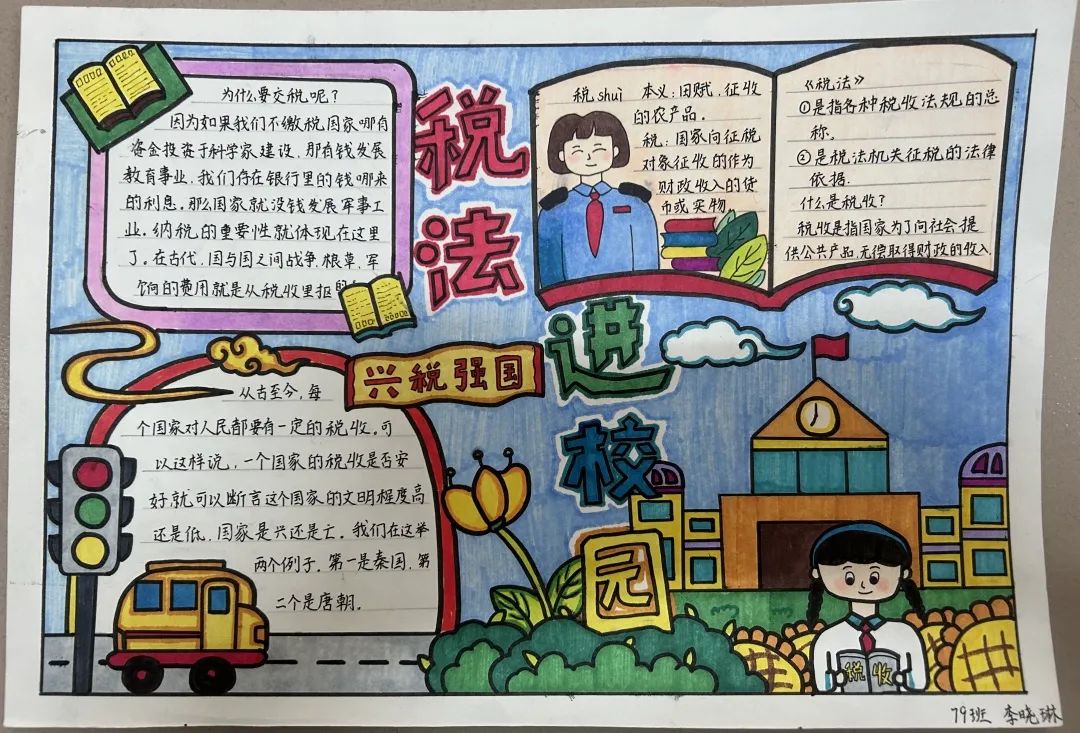 为什么要交税呢？
因为如果我们不缴税国家哪有
资金投资于科学家建设，那有钱发展
教育事业，我们存在银行里的钱哪来
的利息。那么国家就没钱发展军事工
业。纳税的重要性就体现在这里
了。在古代，国与国之间战争，粮草，军
饷的费用就是从税收里抠的
税法
进校园
税shuì 本义：田赋，征收
的农产品。
税：国家向征税
对象征收的作为
财政收入的货
币或实物。
《税法》
①是指各种税收法规的总
称。
②是税法机关征税的法律
依据.
什么是税收？
税收是指国家为了向社会提
供公共产品，无偿取得财政的收入
兴税强国
从古至今，每
个国家对人民都要有一定的税收。可
以这样说，一个国家的税收是否安
好，就可以断言这个国家的文明程度高
还是低，国家是兴还是亡。我们在这举
两个例子。第一是秦国，第
二个是唐朝.
税收
79班 李晓琳